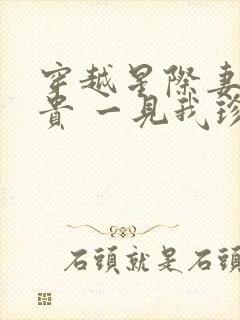 穿越星際妻
貴 一見我珍
石頭就是石頭